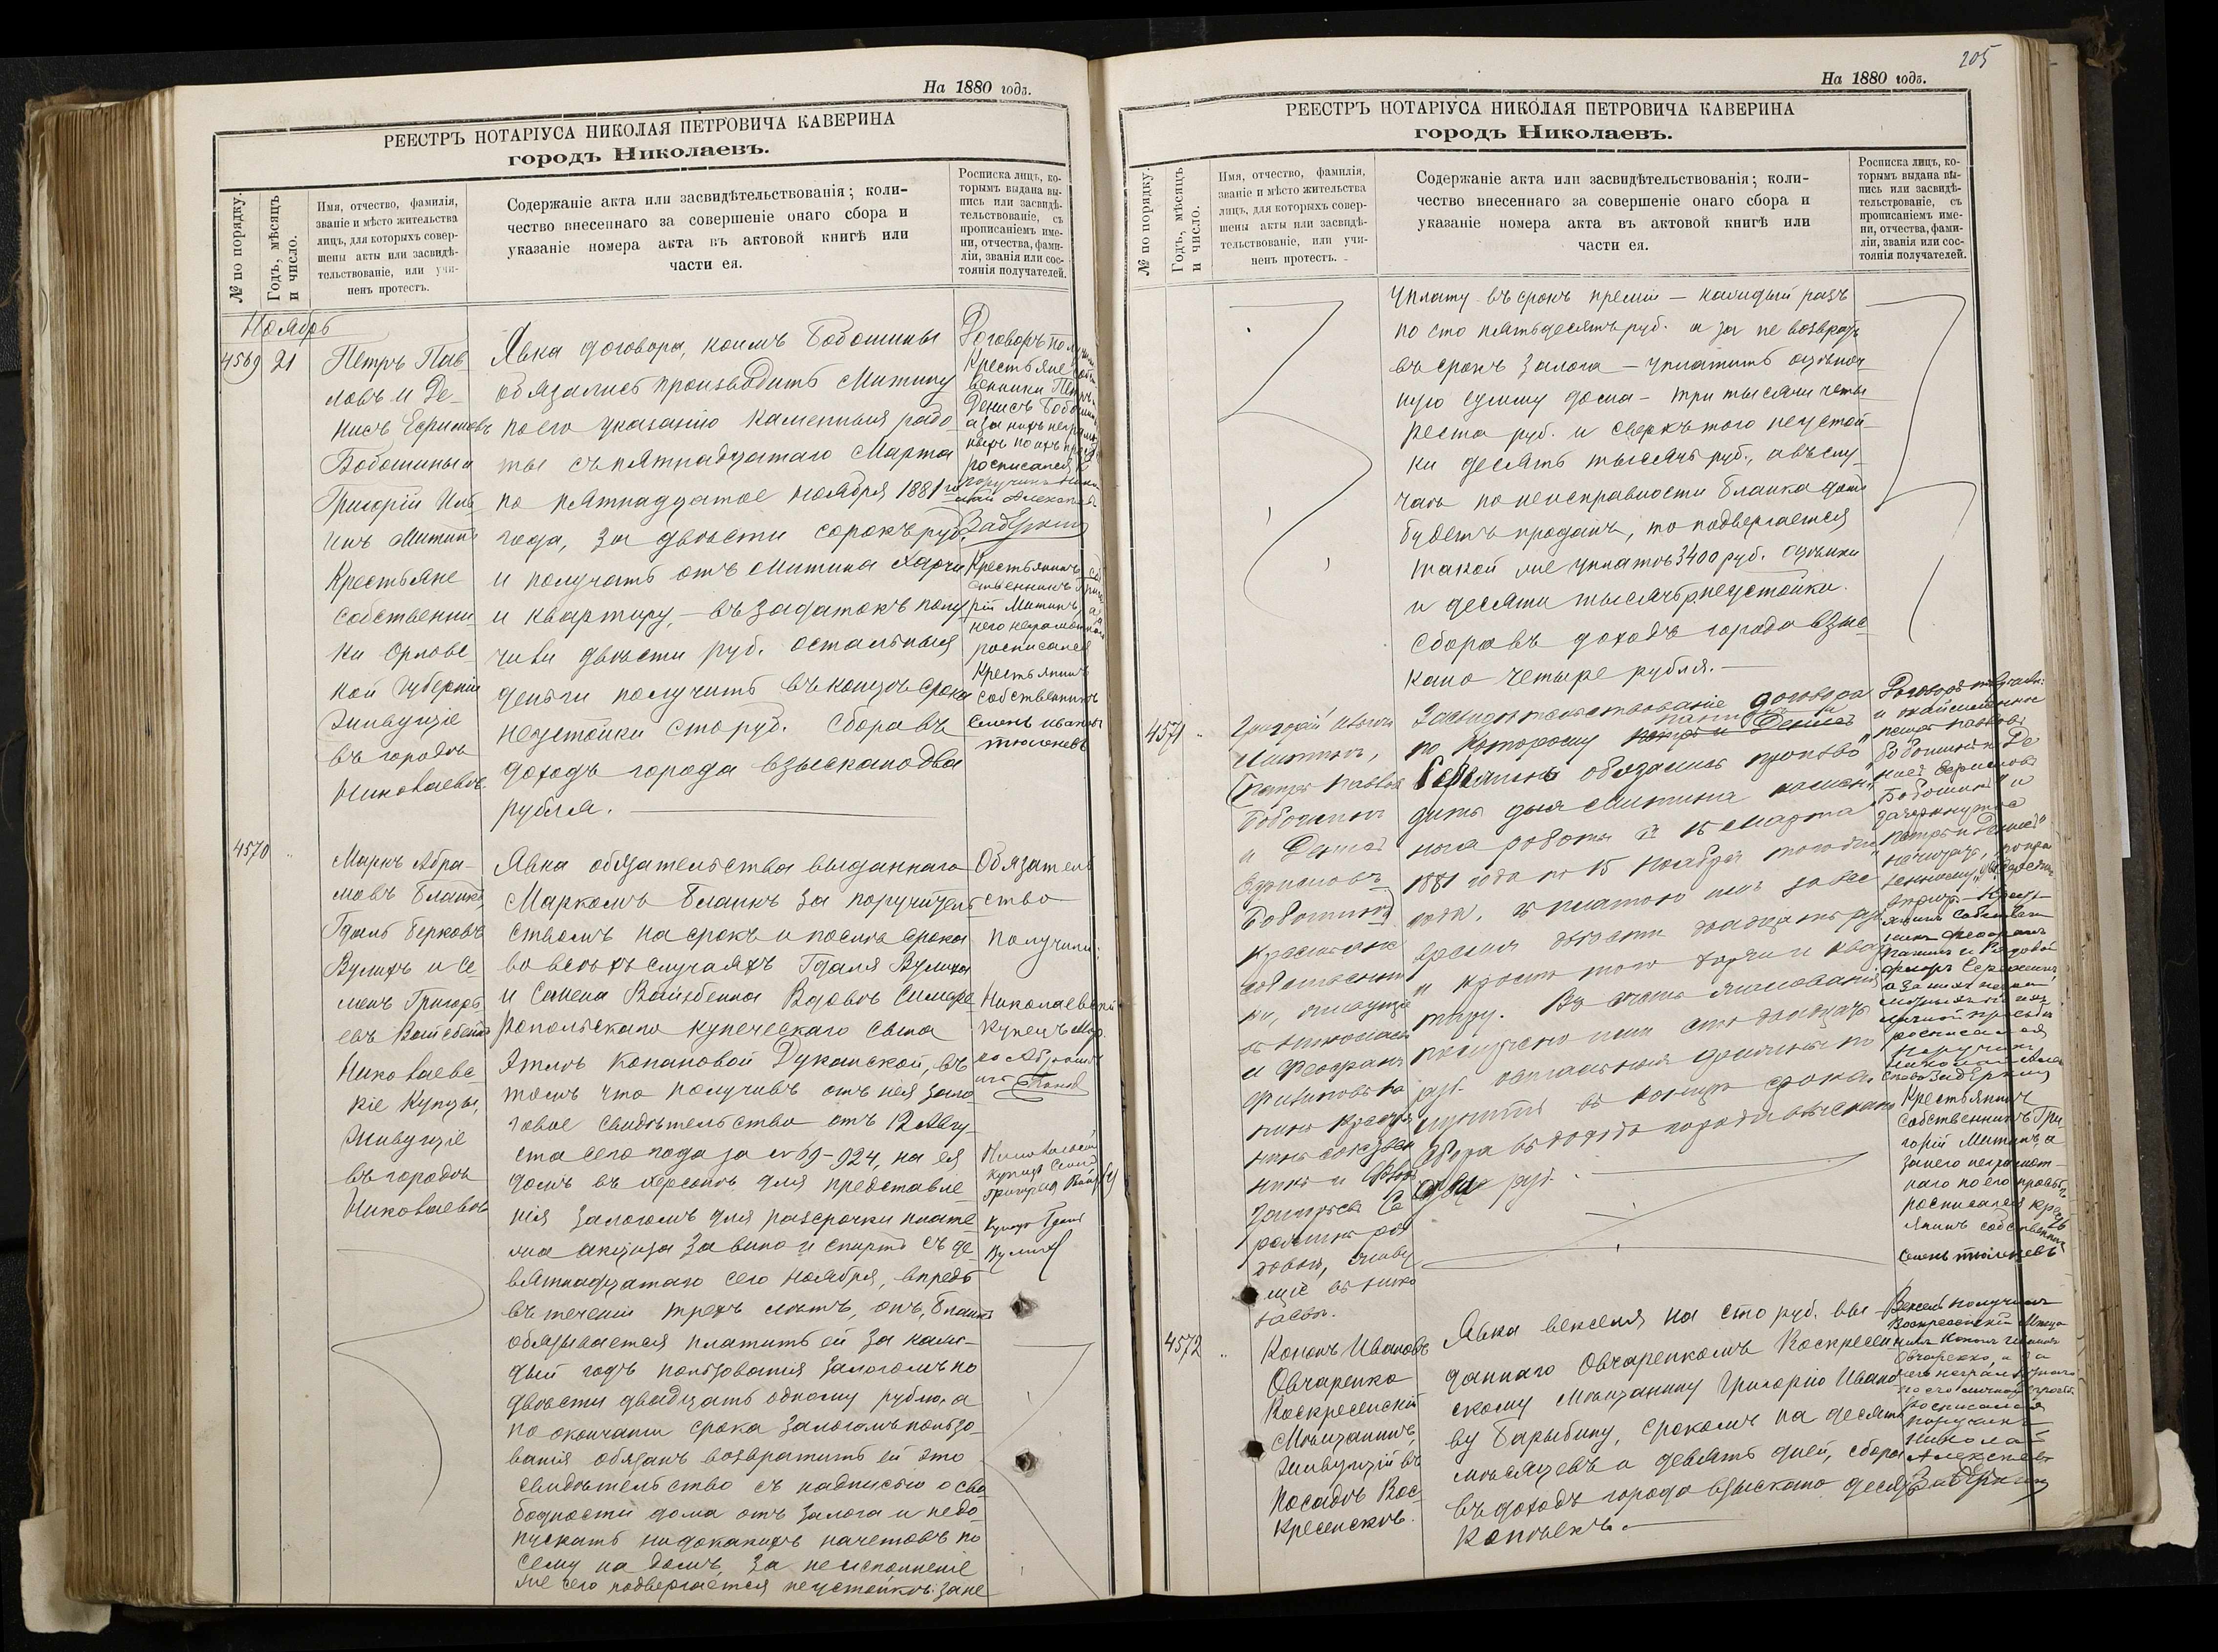 На 1880 годъ.
РЕЕСТРЪ НОТАРІУСА НИКОЛАЯ ПЕТРОВИЧА КАВЕРИНА
городъ Николаевъ.
№ по порядку.
Годъ, мѣсяцъ
и число.
Имя, отчество, фамилія,
званіе и мѣсто жительства
лицъ, для которыхъ совер-
шены акты или засвидѣ-
тельствованіе, или учи-
ненъ протестъ.
Содержаніе акта или засвидѣтельствованія; коли-
чество внесеннаго за совершеніе онаго сбора и
указаніе номера акта въ актовой книгѣ или
части ея.
Росписка лицъ, ко-
торымъ выдана вы-
пись или засвидѣ-
тельствованіе, съ
прописаніемъ име-
ни, отчества, фами-
ліи, званія или сос-
тоянія получателей.
Ноябрь
4569 21
Петръ Пав
ловъ и Де-
нисъ Ефимовъ
Бобошины и
Григорій Иль
инъ Митинъ
Крестьяне
собственни
ки Орловс-
кой Губерніи
Живущіе
въ городѣ
Николаевѣ
Явка договора, коимъ Бобошины
обязались производить Митину
по его указанію каменныя рабо
ты съ пятнадцатаго Марта
по пятнадцатое ноября 1881 го
года, за двѣсти сорокъ руб.
и получать отъ Митина харчи
и квартиру, - въ задатокъ полу
чили двѣсти руб. остальныя
деньги получить въ концѣ срока
неустойки сто руб. Сбора въ
доходъ города взыскано два
рубля.
Договоръ получили
Крестьяне собст
венники Петръ и
Денисъ Бобошины
а за нихъ неграмот
ныхъ по ихъ просьбѣ
росписался
поручикъ Нико
лай Алексѣевъ
Задеркинъ
Крестьянинъ соб
ственникъ Григо
рій Митинъ, а за
него неграмотнаго
росписался
Крестьянинъ
собственникъ
Семенъ Ивановъ
Тюленевъ
4570 "
Маркъ Абра-
мовъ Бланкъ,
Гдаль Берковъ
Вулихъ и Се
менъ Григорь
евъ Вайсбейнъ
Николаевс-
кіе Купцы,
Живущіе
въ городѣ
Николаевѣ
Явка обязательства выданнаго
Маркомъ Бланкъ за поручитель
ствомъ на срокъ и послѣ срока
во всѣхъ случаяхъ Гдаля Вулиха
и Семена Вайсбейна Вдовѣ Симфе
ропольскаго купеческаго сына
Этлѣ Копановой Дуканской, въ
томъ что получивъ отъ нея зало
говое свидѣтельство отъ 12 Авгу-
ста сего года за № 69-924, на ея
домъ въ Херсонѣ для представле
нія залогомъ для разсрочки плате
жа акциза за вино и спиртъ съ де
вятнадцатаго сего ноября, впредь
въ теченіи трехъ лѣтъ, онъ, Бланкъ
обязывается платить ей за каж-
дый годъ пользованія залогомъ по
двѣсти двадцать одному рублю, а
по окончаніи срока залогомъ пользо
ванія обязанъ возвратить ей это
свидѣтельство съ надписью о сво
бодности дома отъ залога и недо
пускать ни до какихъ начетовъ по
сему на домъ, за неисполненіе
же сего подвергается неустойкѣ: за не
Обязатель
ство
получили.
Николаевскій
Купецъ Мар
ко Абрамовъ
Бланкъ
Николаевскій
купецъ Семенъ
Григорьевъ Вайсбейнъ
Купецъ Гдаль
Вулихъ
205
На 1880 годъ.
РЕЕСТРЪ НОТАРІУСА НИКОЛАЯ ПЕТРОВИЧА КАВЕРИНА
городъ Николаевъ.
№ по порядку.
Годъ, мѣсяцъ
и число.
Имя, отчество, фамилія,
званіе и мѣсто жительства
лицъ, для которыхъ совер-
шены акты или засвидѣ-
тельствованіе, или учи-
ненъ протестъ.
Содержаніе акта или засвидѣтельствованія; коли-
чество внесеннаго за совершеніе онаго сбора и
указаніе номера акта въ актовой книгѣ или
части ея.
Росписка лицъ, ко-
торымъ выдана вы-
пись или засвидѣ-
тельствованіе, съ
прописаніемъ име-
ни, отчества, фами-
ліи, званія или сос-
тоянія получателей.
Уплату въ срокъ преміи - каждый разъ
по сто пятьдесятъ руб. а за не возвратъ
въ срокъ залога - уплатить оцѣноч
ную сумму дома - три тысячи четы
реста руб. и сверхъ того неустой
ки десять тысячъ руб., а въ слу-
чаѣ по неисправности Бланка домъ
будетъ проданъ, то подвергается
такой же уплатѣ 3400 руб. оцѣнки
и десяти тысячъ р. неустойки.
Сбора въ доходъ города взыс-
кано четыре рубля.
4571 "
Григорій Ильинъ
Митинъ,
Петръ Павловъ
Бобошинъ
и Денисъ
Ефимовъ
Бобошинъ
Крестьяне
собственни
ки, живущіе
въ Николаевѣ
и Феофанъ
Филиповъ Па
нинъ Крестья
нинъ собствен
никъ и Федоръ
Григорьевъ Се
рядовой, живу
щіе въ Нико
лаевѣ.
Засвидѣтельствованіе договора
по которому Петръ и Денисъ
обязались произво
дить для Митина камен
ныя работы съ 15 Марта
1881 года по 15 Ноября того же
года, съ платою имъ за все
время двѣсти двадцать руб.
и кромѣ того харчи и квар
тиру. Въ счетъ жалованія
получено ими сто двадцать
руб. остальныя должны по
лучить въ концѣ срока.
Сбора въ доходъ города взыскано
два руб.
Крестьянинъ
собственникъ Гри
горій Митинъ, а
за него неграмот-
наго по его просьбѣ
росписался крес
тьянинъ собственникъ
Семенъ Тюленевъ
4572 "
Кононъ Ивановъ
Овчаренко
Воскресенскій
Мѣщанинъ,
Живущій въ
посадѣ Вос-
кресенскѣ.
Явка векселя на сто руб. вы-
даннаго Овчаренкомъ Воскресен
скому Мѣщанину Григорію Ивано
ву Барыбину, срокомъ на десять
мѣсяцевъ и девять дней, сбора
въ доходъ города взыскано десять
копѣекъ.
Вексель получилъ
Воскресенскій Мѣща
нинъ Кононъ Ивановъ
Овчаренко, а за
него неграмотнаго
по его личной просьбѣ
росписался
поручикъ
Николай
Алексѣевъ
Задеркинъ